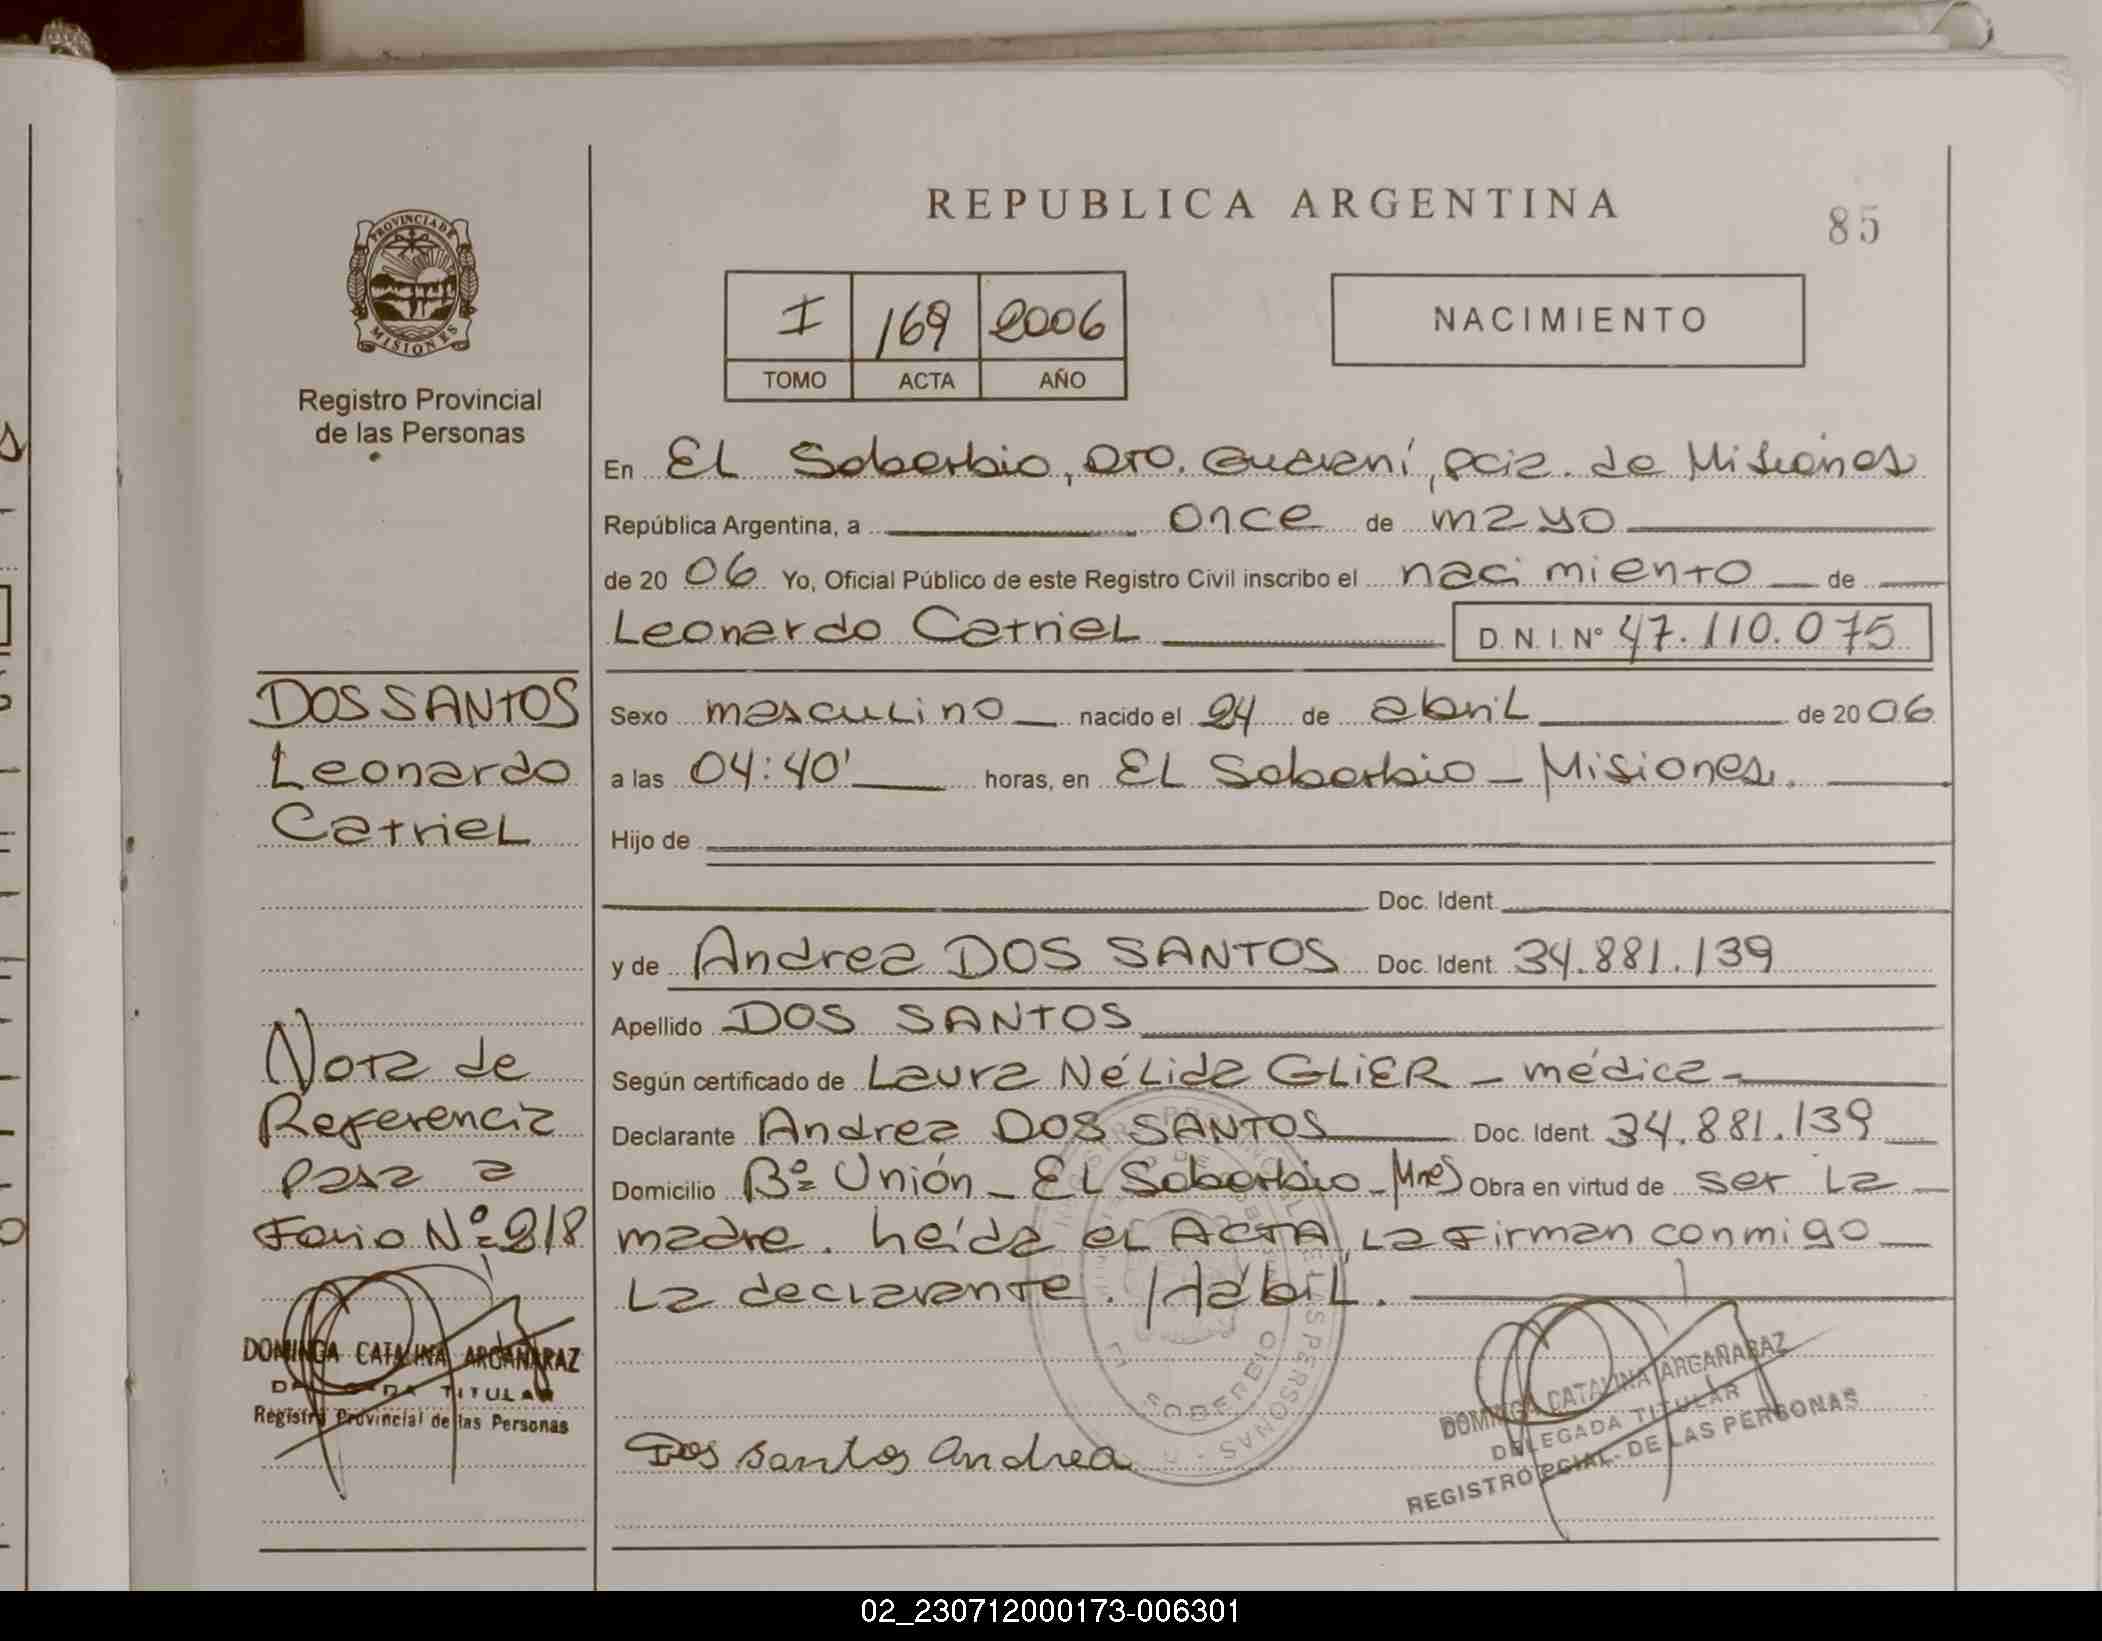 REPUBLICA ARGENTINA
85
PROVINCIA DE
MISIONES
Registro Provincial
de las Personas
I 169 2006
TOMO ACTA AÑO
NACIMIENTO
En EL Soberbio, Dto. Guaraní, Pcia. de Misiones
República Argentina, a once de mayo
de 20 06 Yo, Oficial Público de este Registro Civil inscribo el nacimiento de
Leonardo Catriel D. N. I. N° 47.110.075
DOS SANTOS
Leonardo
Catriel
Sexo masculino nacido el 24 de abril de 20 06
a las 04:40' horas, en EL Soberbio - Misiones.
Hijo de
Doc. Ident.
y de Andrea DOS SANTOS Doc. Ident. 34.881.139
Apellido DOS SANTOS
Según certificado de Laura Nélida GLIER - médica -
Declarante Andrea DOS SANTOS Doc. Ident. 34.881.139
Domicilio Bº Unión - EL Soberbio - Mnes Obra en virtud de ser la
madre. Leída el ACTA, la firman conmigo
la declarante. Hábil.
Nota de
Referencia
pasa a
Folio Nº 218
DOMINGA CATALINA ARGAÑARAZ
DELEGADA TITULAR
Registro Provincial de las Personas
Dos santos andrea
EL SOBERBIO
DOMINGA CATALINA ARGAÑARAZ
DELEGADA TITULAR
REGISTRO PCIAL. DE LAS PERSONAS
02_230712000173-006301